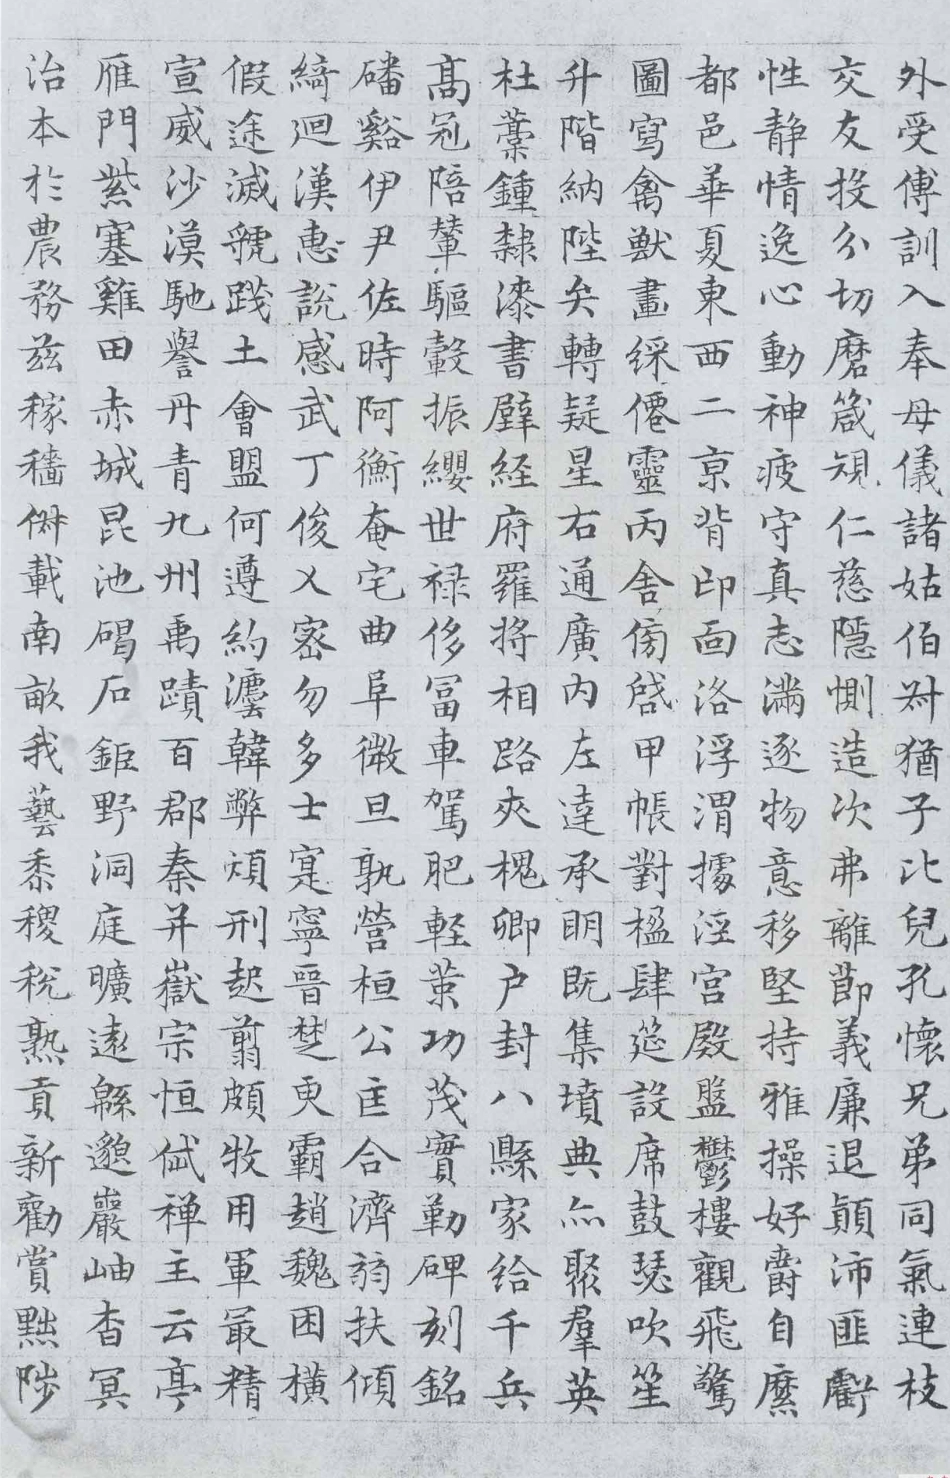 外受傅訓入奉母儀諸姑伯叔猶子比兒孔懷兄弟同氣連枝
交友投分切磨箴規仁慈隱惻造次弗離節義廉退顛沛匪虧
性静情逸心動神疲守真志滿逐物意移堅持雅操好爵自縻
都邑華夏東西二京背邙面洛浮渭據涇宮殿盤鬱樓觀飛驚
圖寫禽獸畫綵僊靈丙舍傍啓甲帳對楹肆筵設席鼓瑟吹笙
升階納陛弁轉疑星右通廣內左達承明既集墳典亦聚羣英
杜藁鍾隸漆書壁経府羅將相路夾槐卿户封八縣家給千兵
髙冠陪輦驅轂振纓世禄侈富車駕肥軽策功茂實勒碑刻銘
磻谿伊尹佐時阿衡奄宅曲阜微旦孰營桓公匡合濟弱扶傾
綺迴漢惠說感武丁俊乂密勿多士寔寧晉楚更霸趙魏困橫
假途滅虢踐土會盟何遵約灋韓弊煩刑起翦頗牧用軍最精
宣威沙漠馳譽丹青九州禹蹟百郡秦并嶽宗恒岱禅主云亭
雁門紫塞雞田赤城昆池碣石鉅野洞庭曠遠緜邈巖岫杳冥
治本於農務茲稼穡俶載南畝我藝黍稷稅熟貢新勸賞黜陟